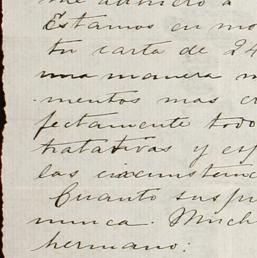 me adhiero a
Estamos en mo
tu carta de 24
una manera m
mentos mas cr
fectamente todo
tratativas y esp
las circumstanc
Cuanto suspi
nunca. Much
hermano: